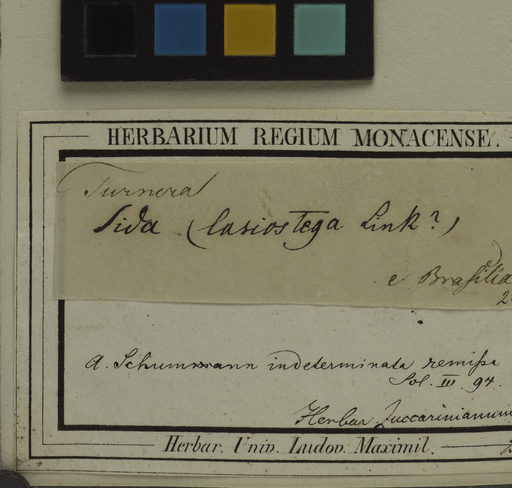 HERBARIUM REGIUM MONACENSE.
Turnera
Sida (lasiostega Link?)
e Brasilia
2
A. Schummann indeterminata remissa
Sol. III. 94.
Herbar. Zuccarinianum
Herbar. Univ. Ludov. Maximil.